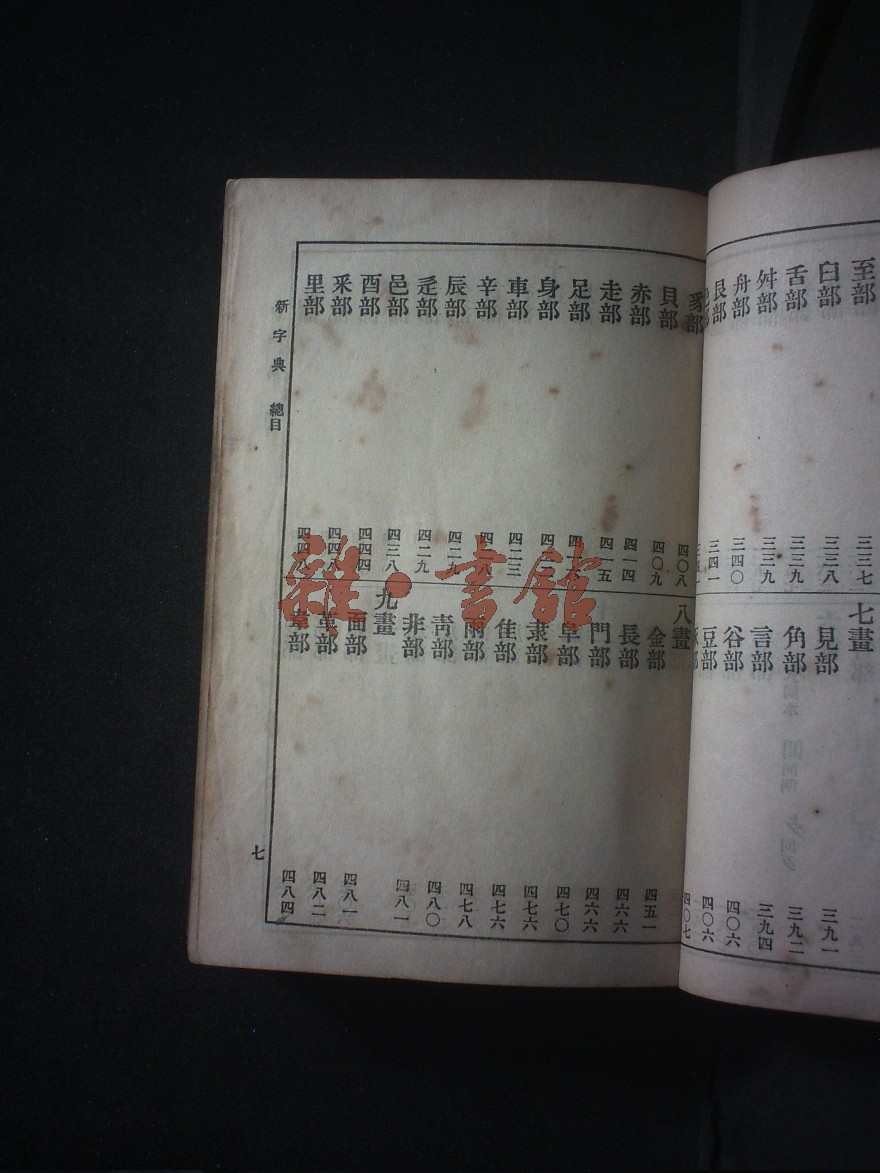 至部 三三七
臼部 三三八
舌部 三三九
舛部 三三九
舟部 三四〇
艮部 三四一
七畫
見部 三九一
角部 三九二
言部 三九四
谷部 四〇六
豆部 四〇六
四〇七
豸部 四〇八
貝部 四〇九
赤部 四一四
走部 四一五
足部
身部
車部 四二三
辛部 四二八
辰部 四二九
辵部 四二九
邑部 四三八
酉部 四四四
釆部 四四八
里部 四四八
八畫
金部 四五一
長部 四六六
門部 四六六
阜部 四七〇
隶部 四七六
隹部 四七六
雨部 四七八
靑部 四八〇
非部 四八一
九畫
面部 四八一
革部 四八二
韋部 四八四
新字典 總目
七
雜·書館